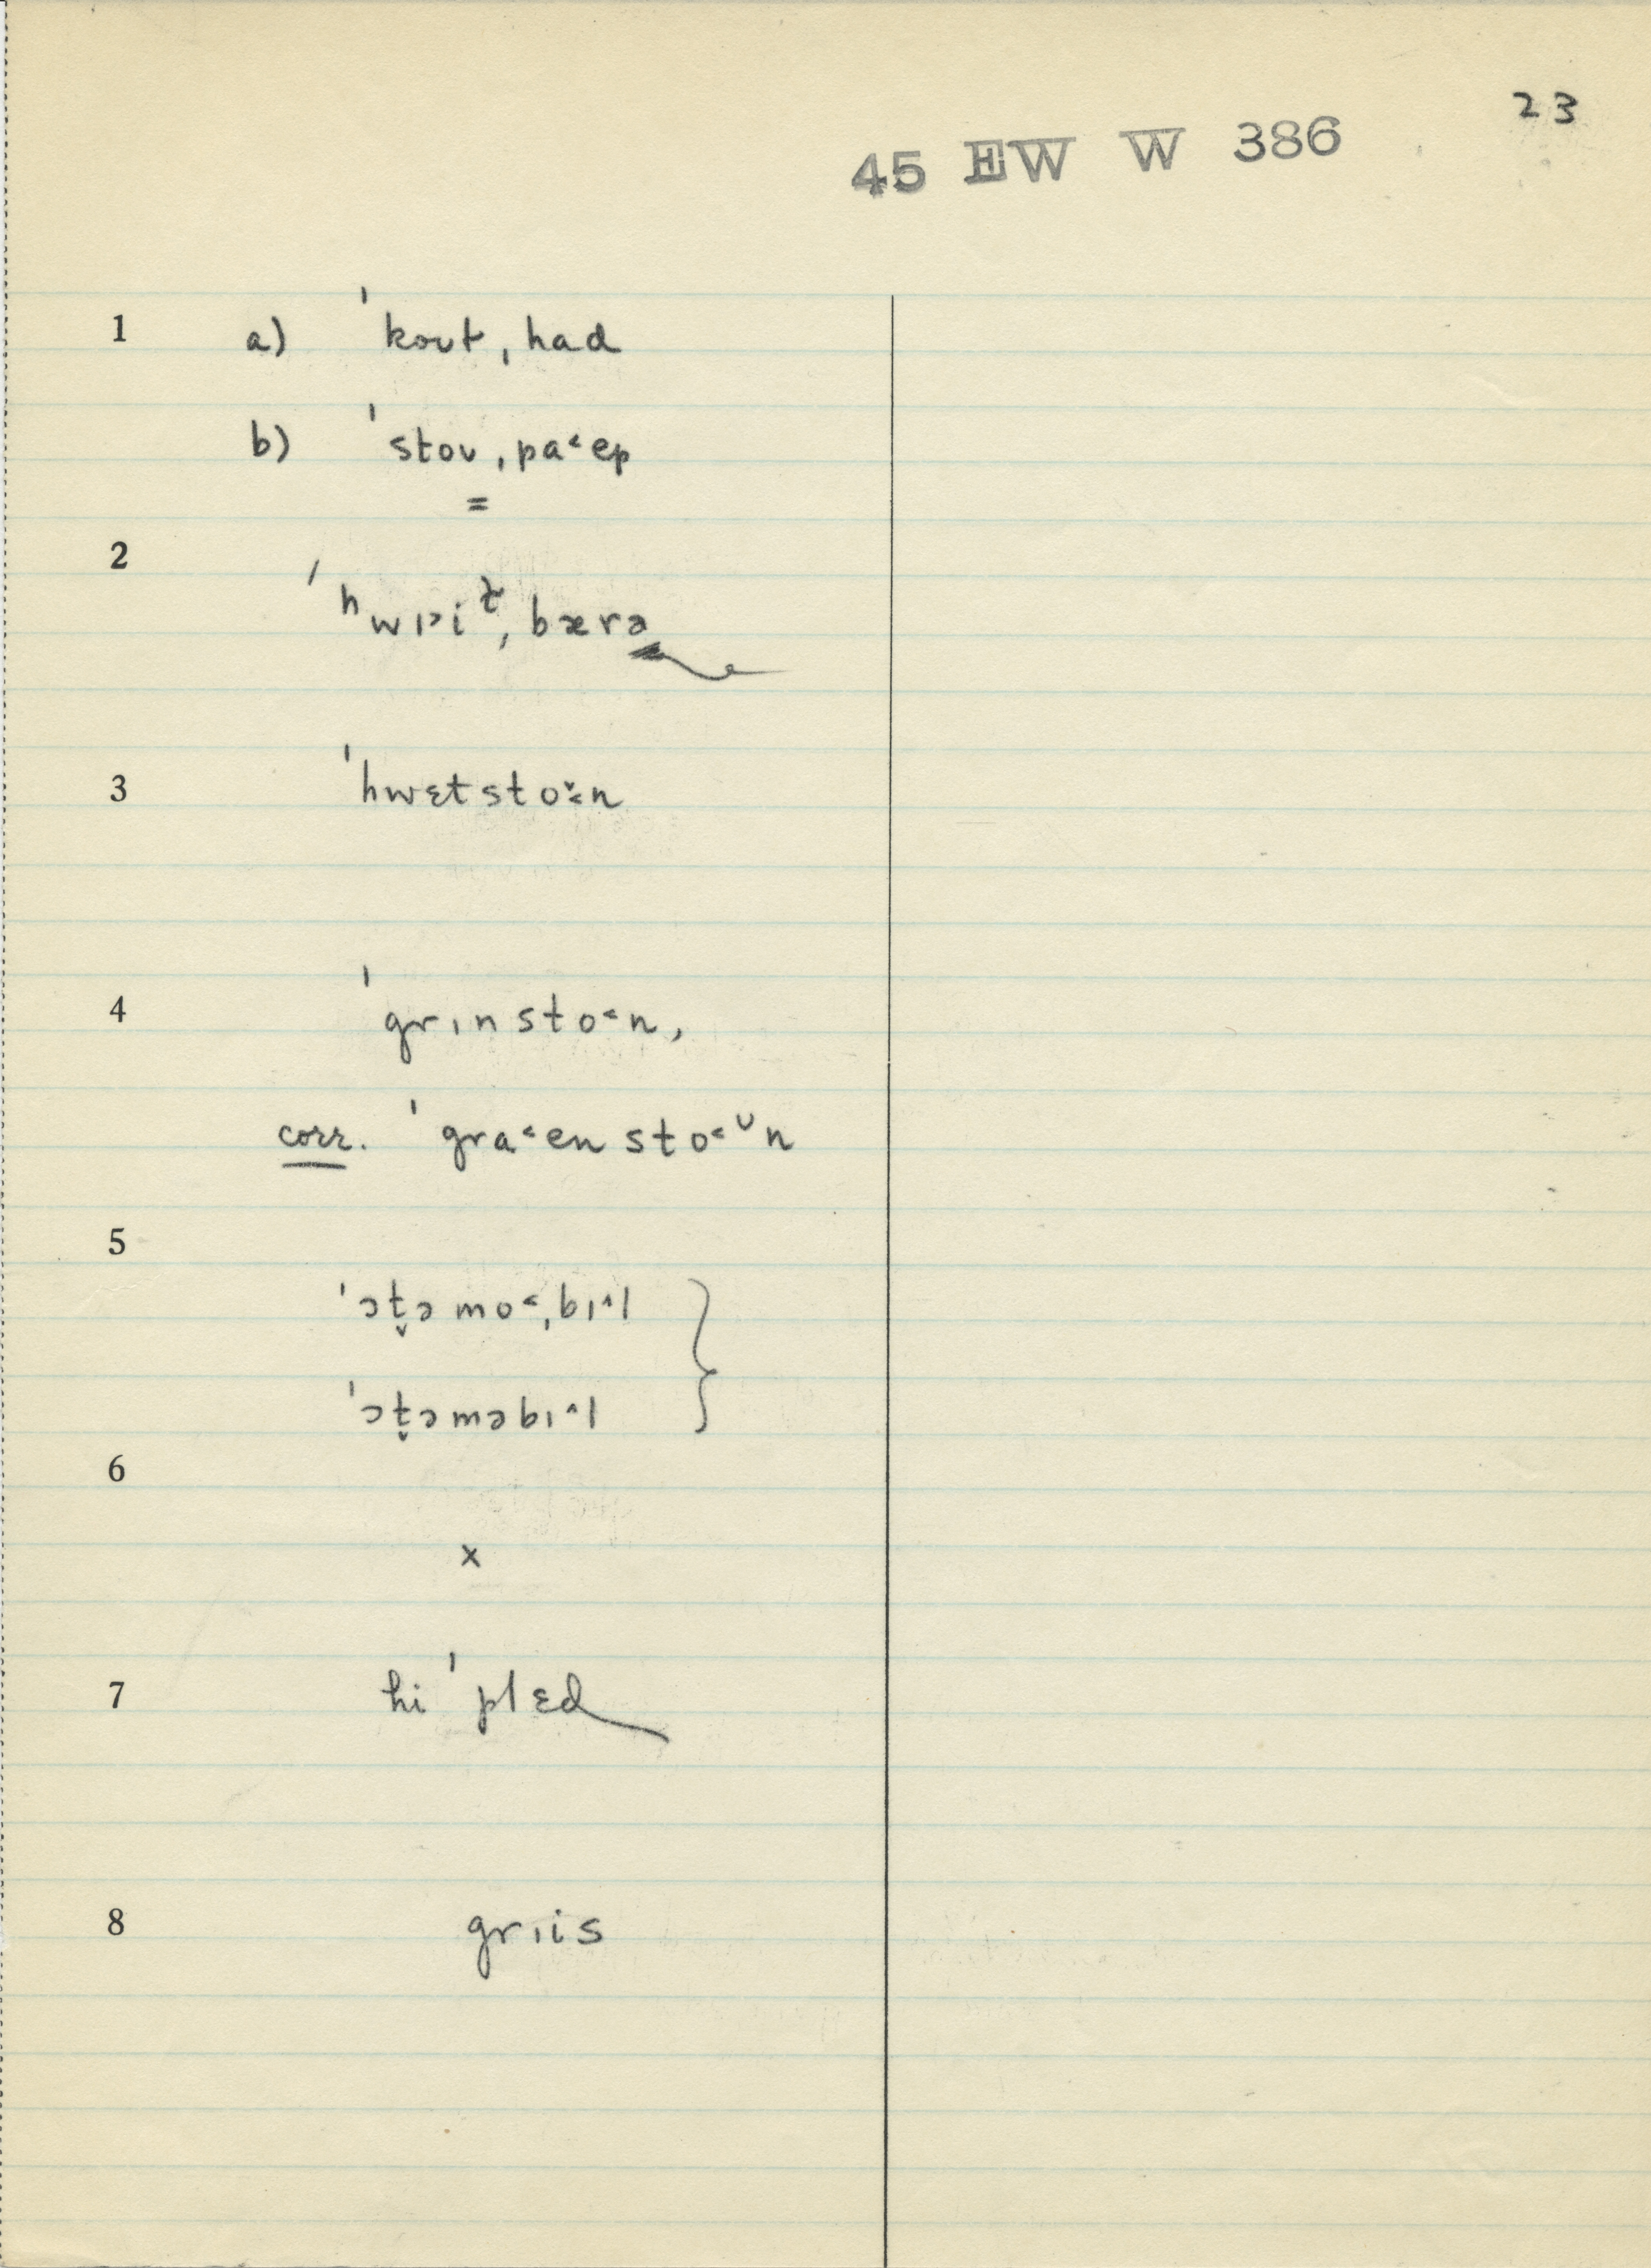 23
45 EW W 386
1 a) ˈkoʊt ˌhɑd
b) ˈstoʊ ˌpa˂ep
=
2 ˈʰwɪ˃iᵗ̬ ˌbærə
3 ˈhwɛtsto˂̌n
4 ˈgrɪnsto˂n,
corr. ˈgra˂ensto˂ᶷn
5 ˈɔt̬əmo˂ˌbɪ˄l
ˈɔt̬əməbɪ˄l
6
x
7 hi ˈplɛd
8 grɪis